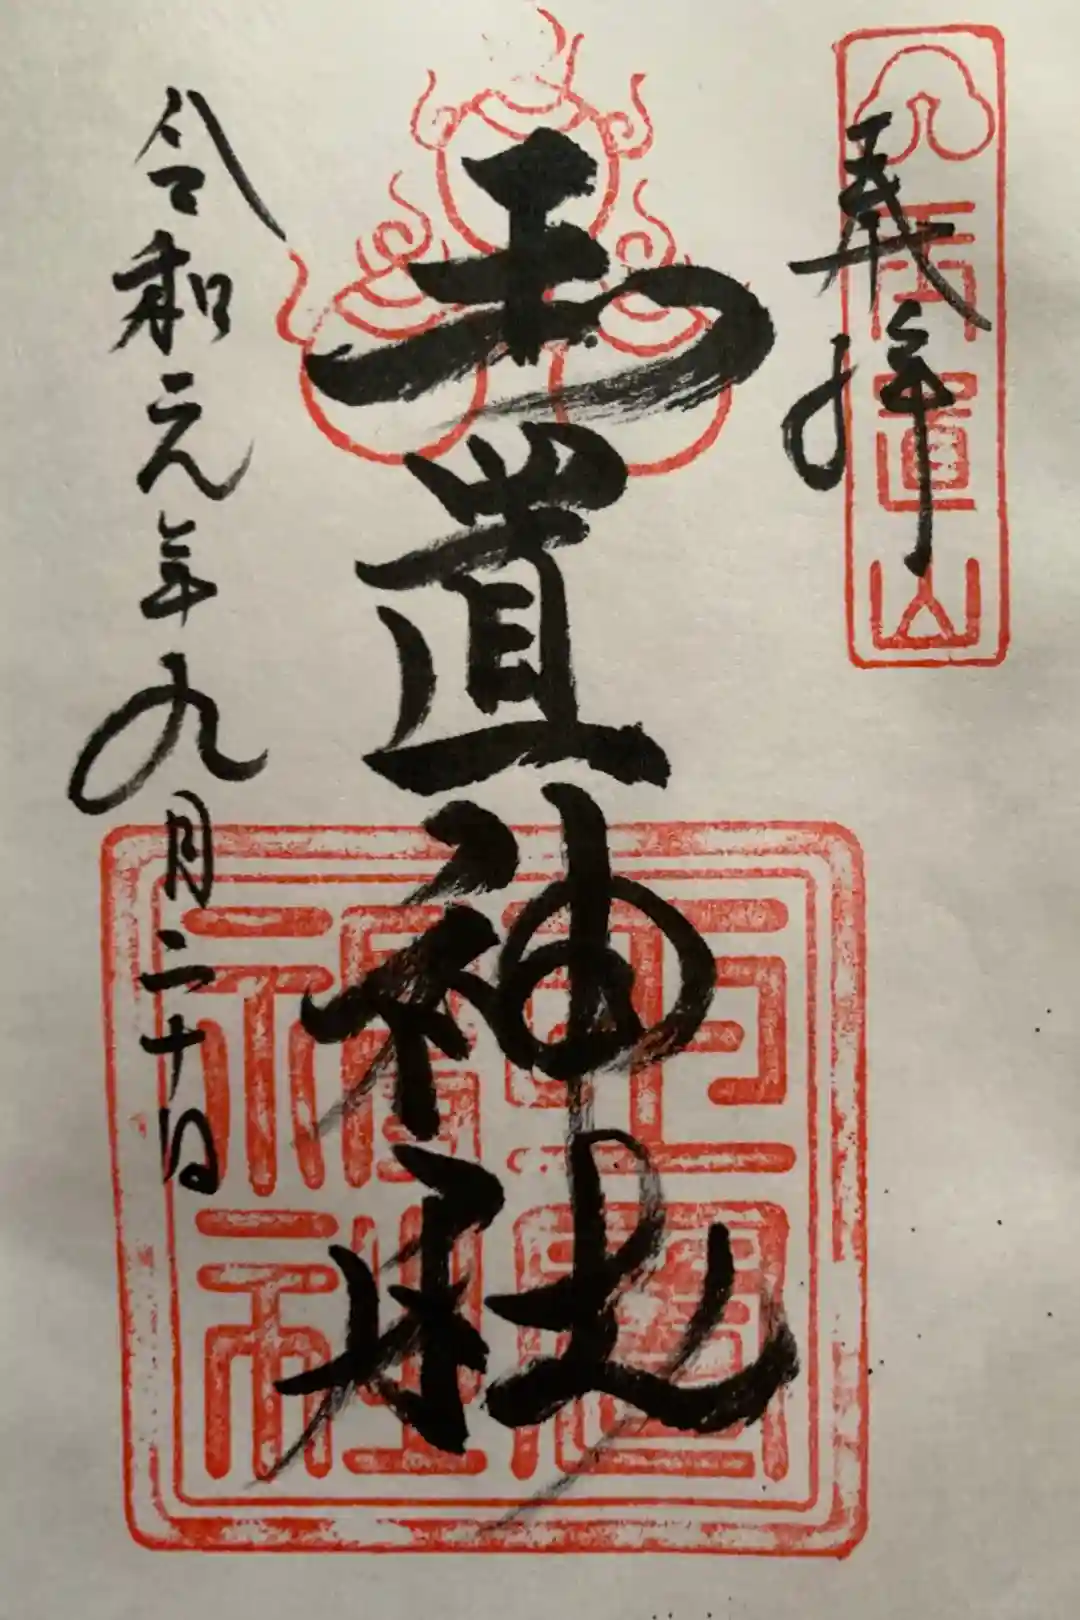 奉拝
玉置山
玉置神社
玉置神社
令和元年九月二十日